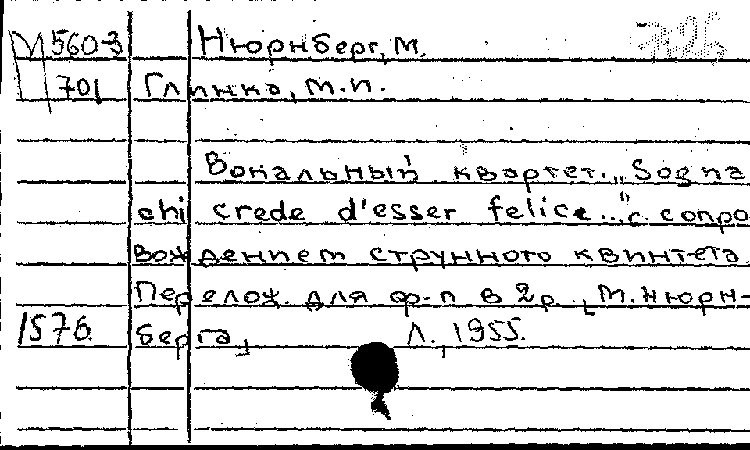 М 560-3 Нюрнберг, М.
701 Глинка, М.И.
Вокальный квартет „Sogna
chi crede d'esser felice..." с сопро
вождением струнного квинтета.
Перелож. для ф-п в 2 р. [М. Нюрн-
1576. берга] Л., 1955.